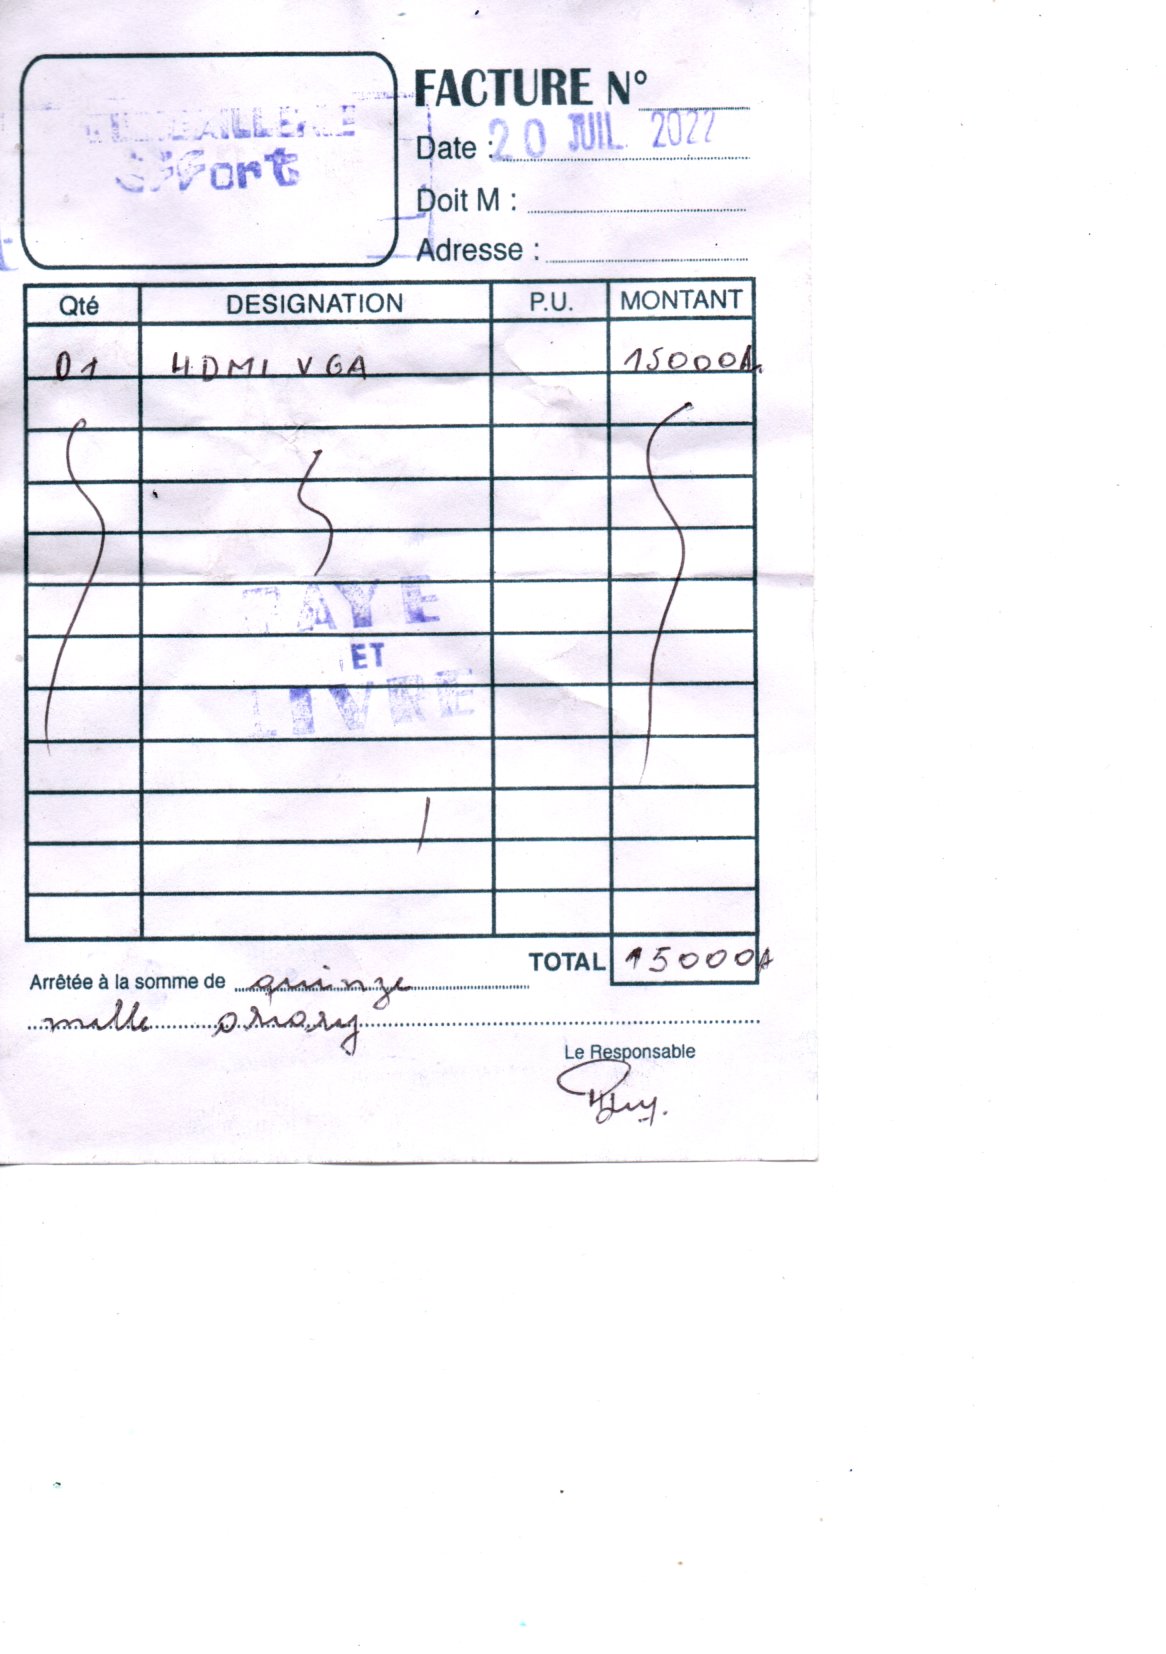 QUINCAILLERIE
Effort
FACTURE N°
Date : 20 JUIL. 2022
Doit M :
Adresse :
Qté DESIGNATION P.U. MONTANT
01 HDMI VGA 15000A
PAYE
ET
LIVRE
TOTAL 15000A
Arrêtée à la somme de quinze
mille ariary
Le Responsable